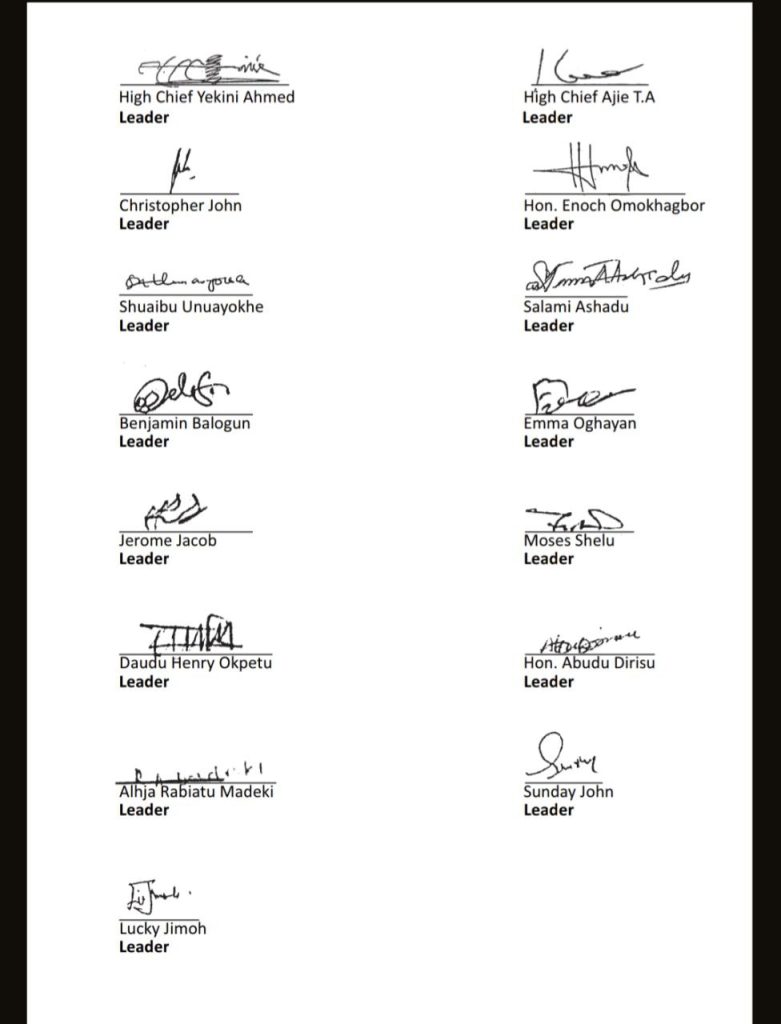 High Chief Yekini Ahmed
Leader
High Chief Ajie T.A
Leader
Christopher John
Leader
Hon. Enoch Omokhagbor
Leader
Shuaibu Unuayokhe
Leader
Salami Ashadu
Leader
Benjamin Balogun
Leader
Emma Oghayan
Leader
Jerome Jacob
Leader
Moses Shelu
Leader
Daudu Henry Okpetu
Leader
Hon. Abudu Dirisu
Leader
Alhja Rabiatu Madeki
Leader
Sunday John
Leader
Lucky Jimoh
Leader